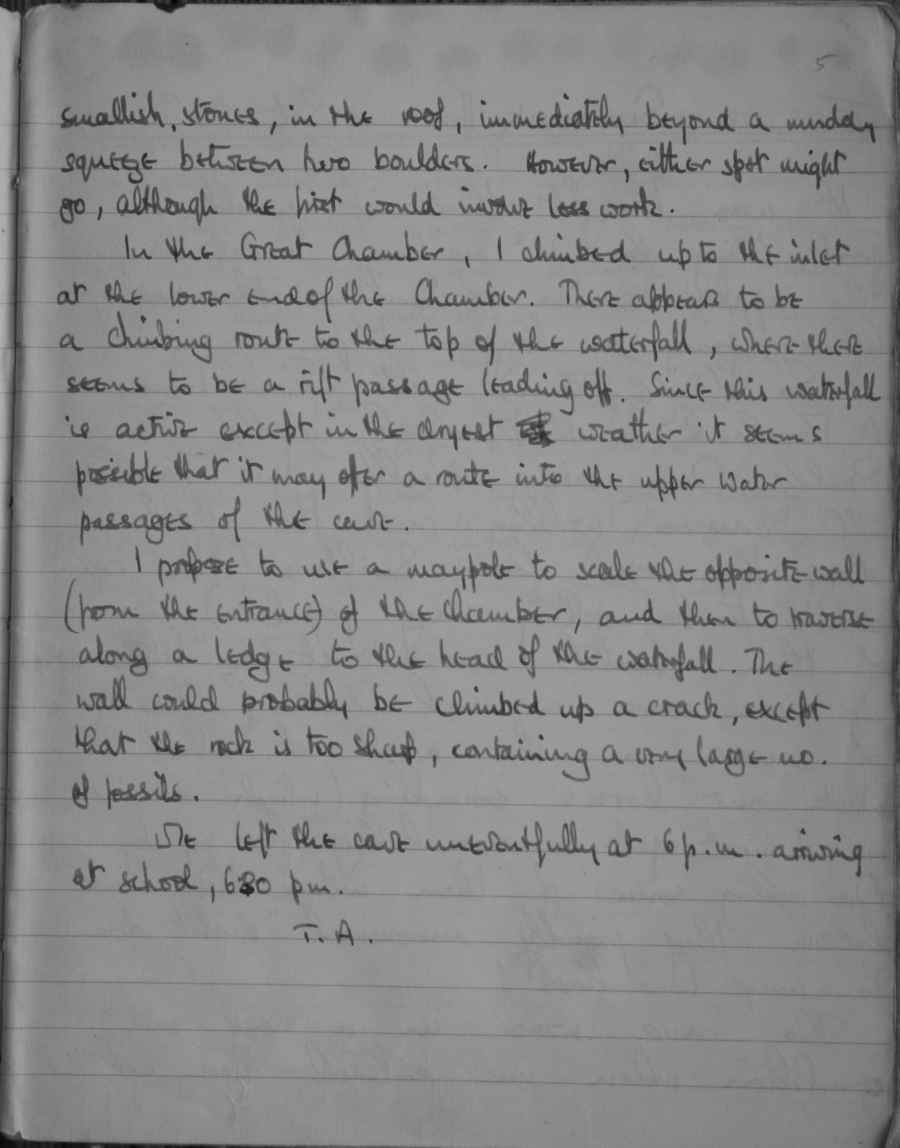 5
smallish, stones, in the roof, immediately beyond a muddy
squeeze between two boulders. However, either spot might
go, although the first would involve less work.
In the Great Chamber, I climbed up to the inlet
at the lower end of the Chamber. There appears to be
a climbing route to the top of the waterfall, where there
seems to be a rift passage leading off. Since this waterfall
is active except in the dryest weather it seems
possible that it may offer a route into the upper water
passages of the cave.
I propose to use a maypole to scale the opposite wall
(from the entrance) of the chamber, and then to traverse
along a ledge to the head of the waterfall. The
wall could probably be climbed up a crack, except
that the rock is too sharp, containing a very large no.
of fossils.
We left the cave uneventfully at 6 p.m. arriving
at school, 630 pm.
T. A.